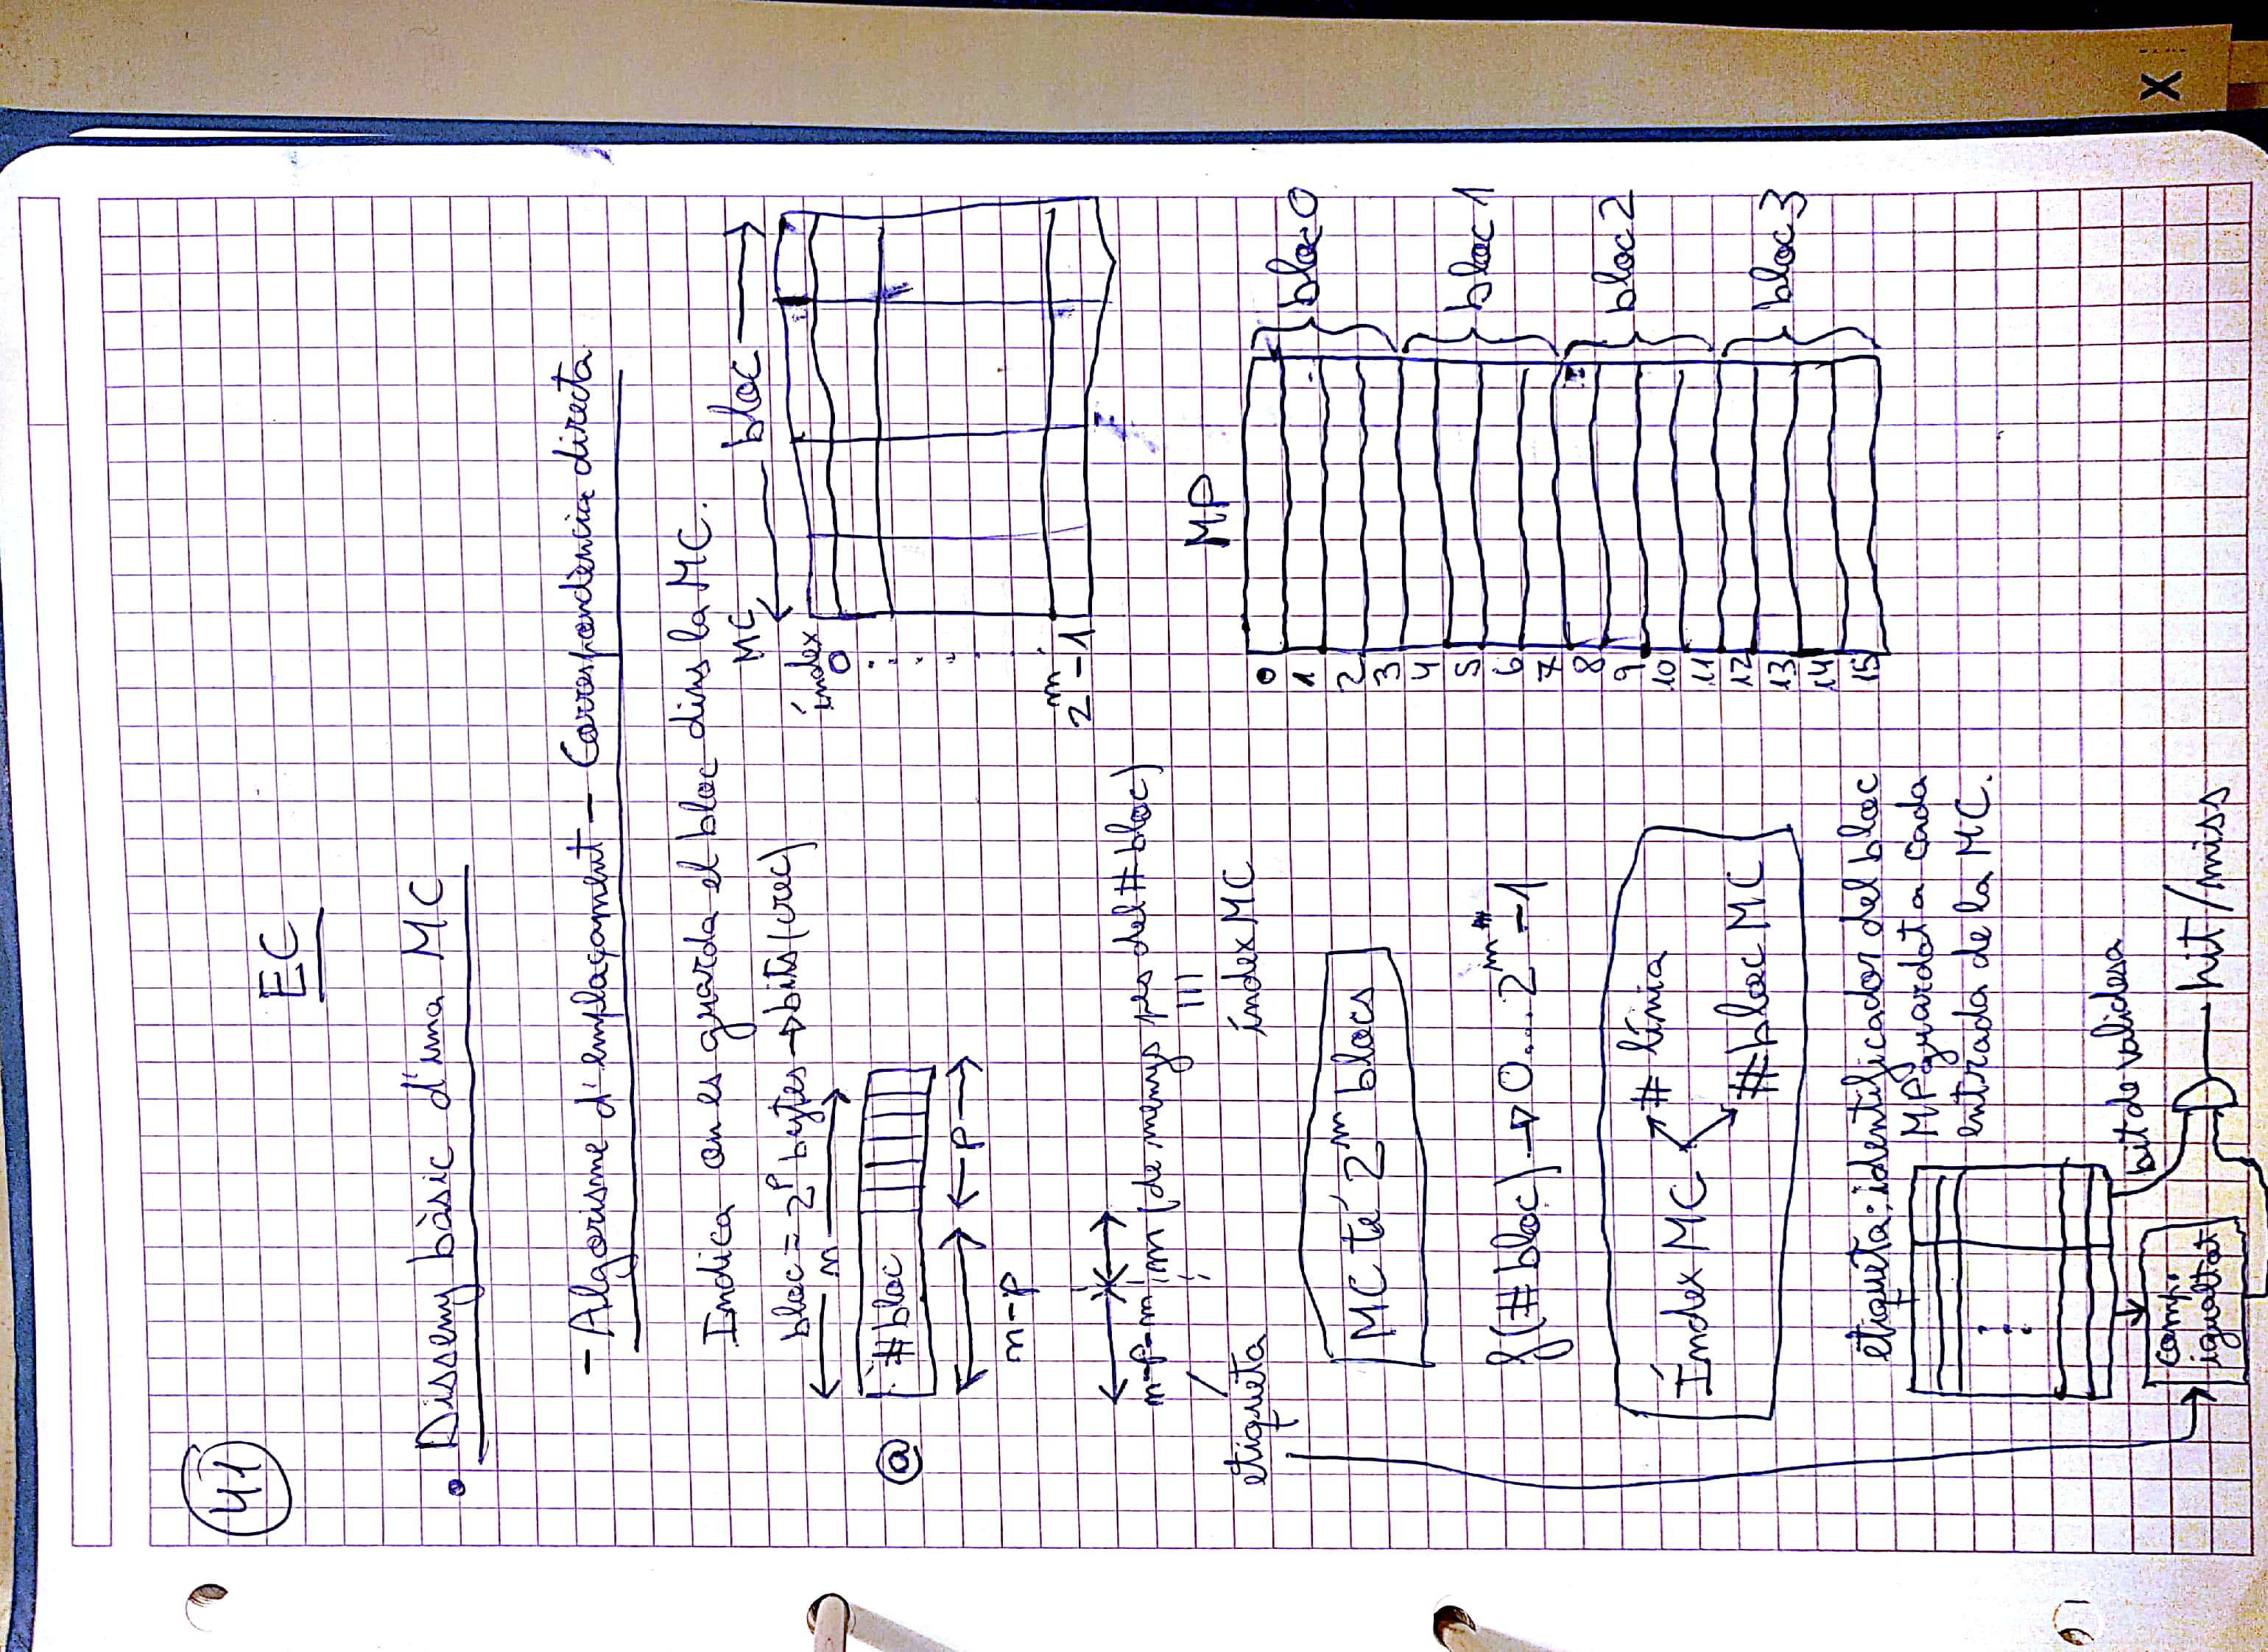 41
EC
• Disseny bàsic d'una MC
- Algorisme d'emplaçament - Correspondència directa
Indica on es guarda el bloc dins la MC.
bloc = 2^p bytes → bits (crec)
n
@ #bloc
p
n-p
n-p-m m (de menys pes del #bloc)
etiqueta
índex MC
MC té 2^m blocs
f(#bloc) → 0...2^m -1
Índex MC
# línia
#bloc MC
etiqueta: identificador del bloc
MP guardat a cada
entrada de la MC.
bit de validesa
comp.
igualtat
hit/miss
MC
bloc
índex
0
2^m -1
MP
0
1
2
3
bloc 0
4
5
6
7
bloc 1
8
9
10
11
bloc 2
12
13
14
15
bloc 3
X